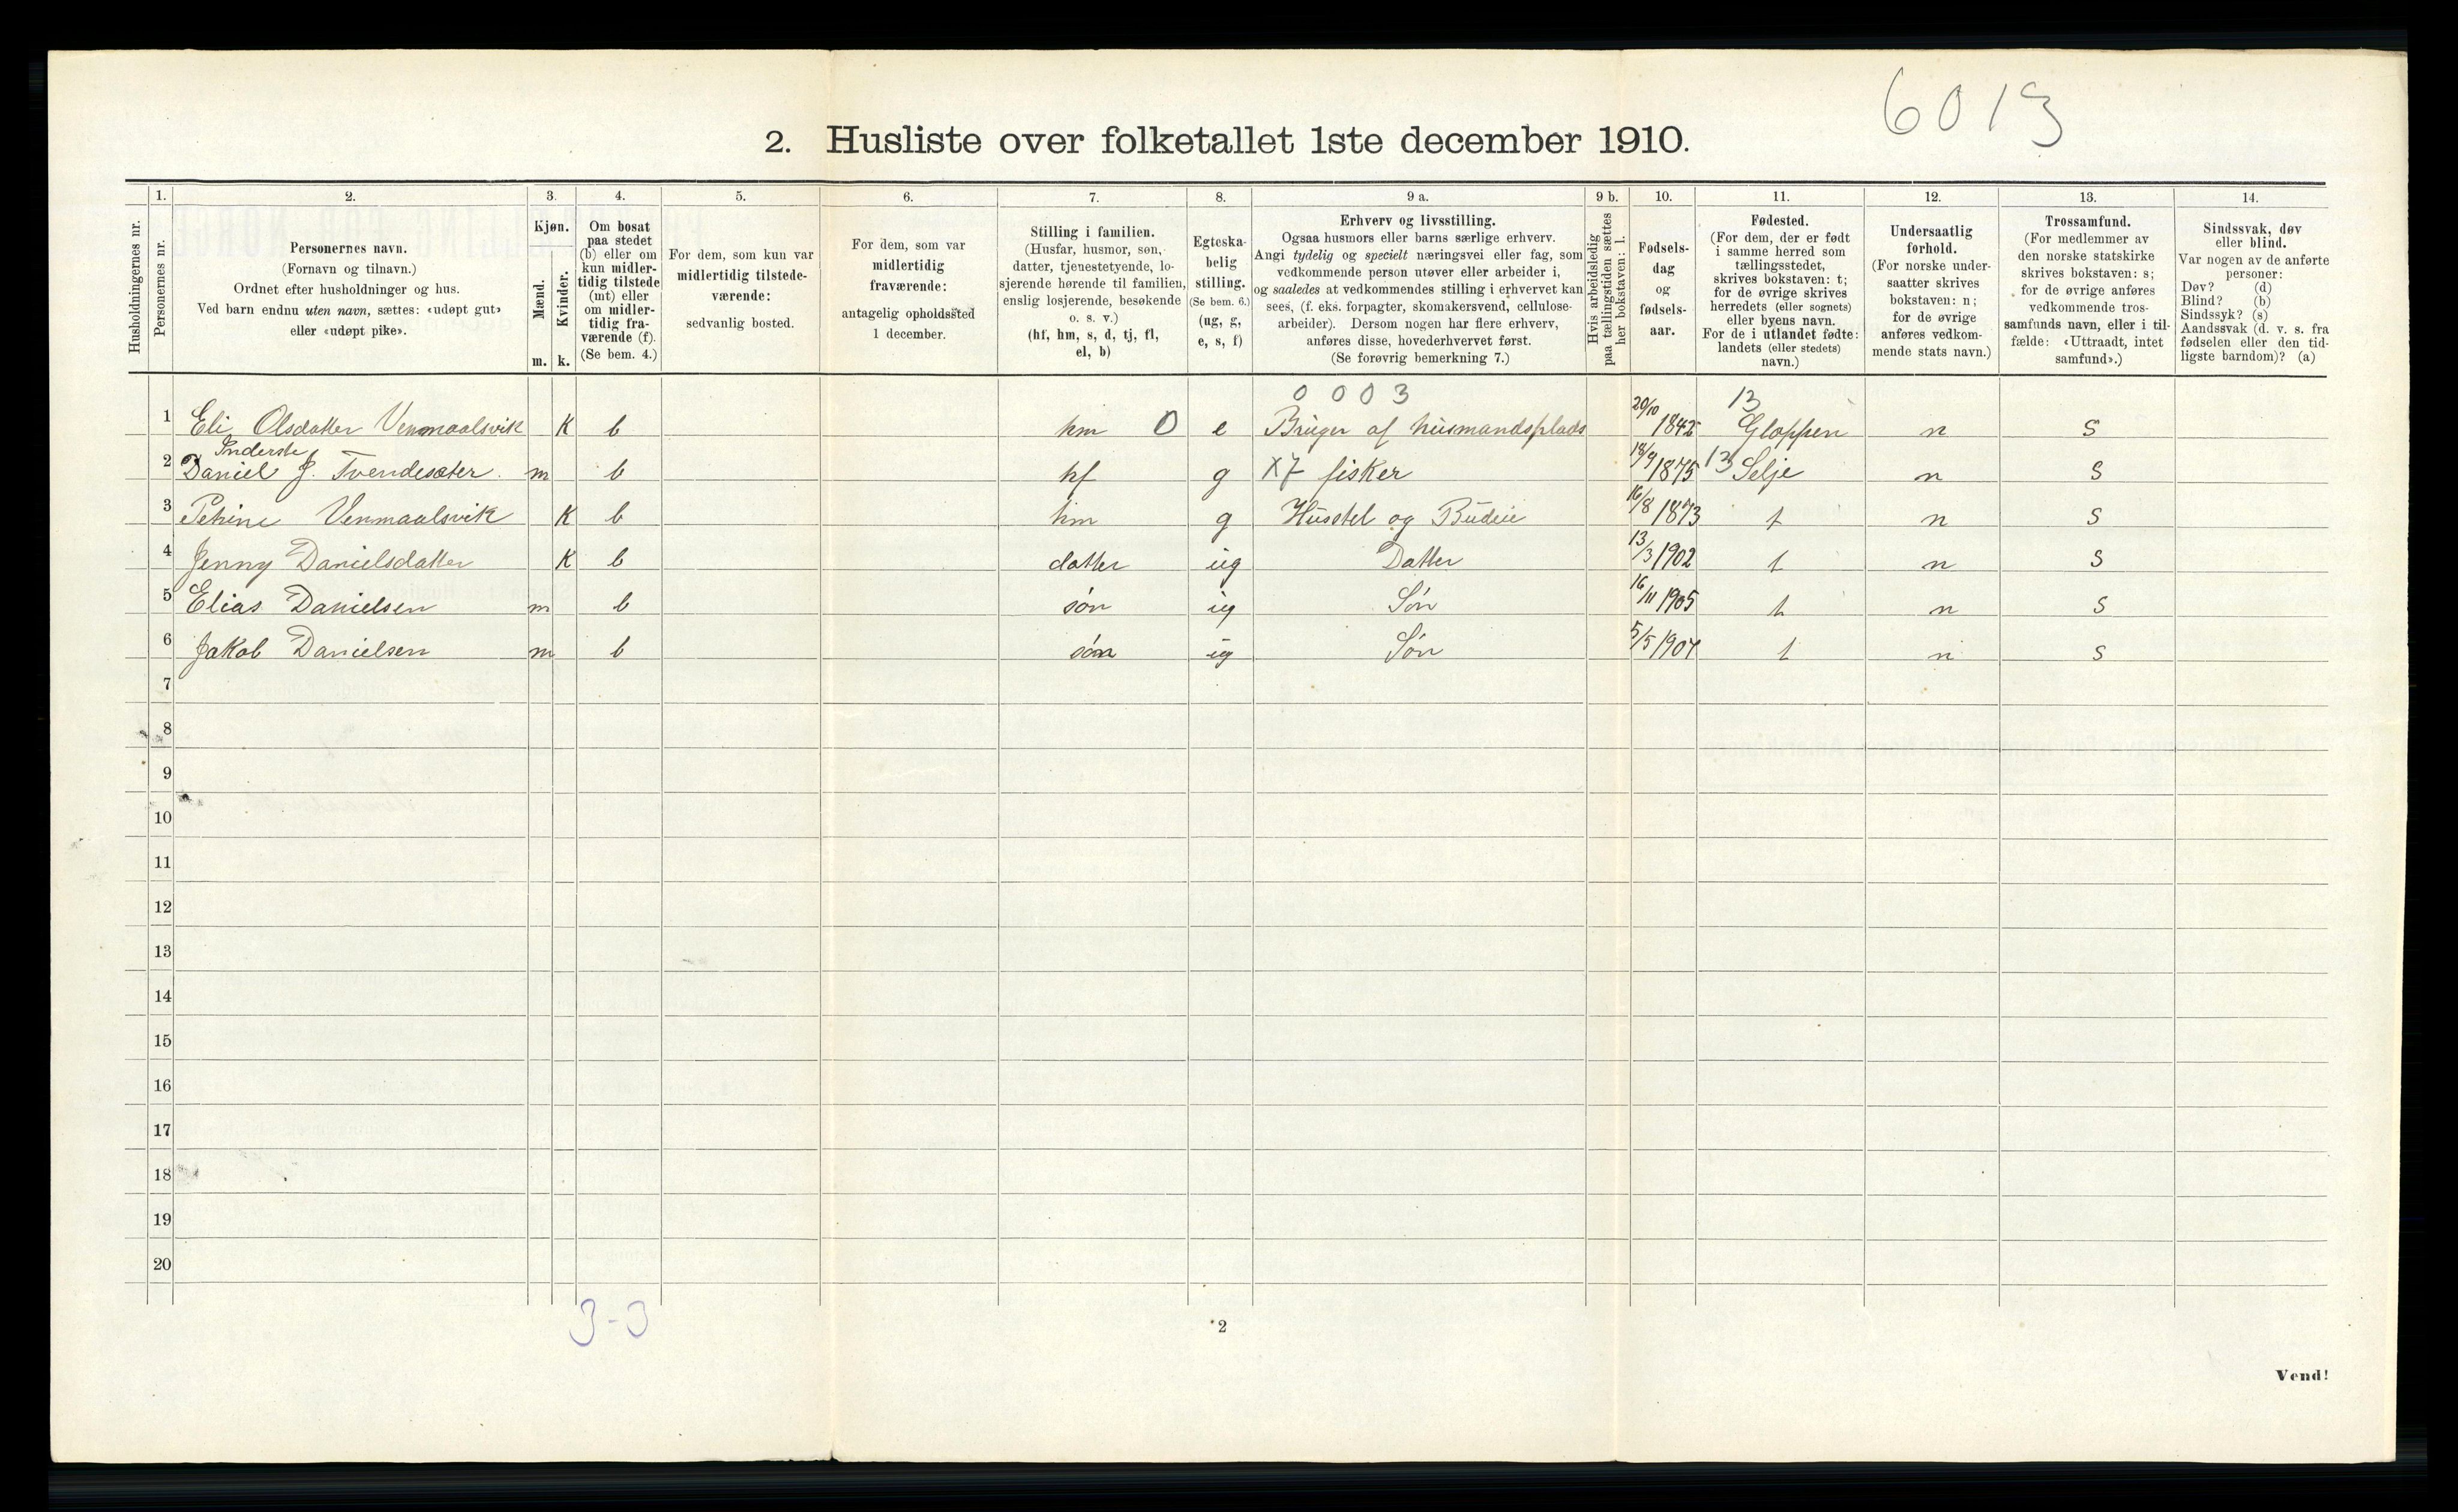 6013
2. Husliste over folketallet 1ste december 1910.
1. 2. 3. 4. 5. 6. 7. 8. 9 a. 9 b. 10. 11. 12. 13. 14.
Husholdningernes nr.
Personernes nr.
Personernes navn.
(Fornavn og tilnavn.)
Ordnet efter husholdninger og hus.
Ved barn endnu uten navn, sættes: «udøpt gut»
eller «udøpt pike».
Kjøn.
Mænd.
m.
Kvinder.
k.
Om bosat
paa stedet
(b) eller om
kun midler-
tidig tilstede
(mt) eller
om midler-
tidig fra-
værende (f).
(Se bem. 4.)
For dem, som kun var
midlertidig tilstede-
værende:
sedvanlig bosted.
For dem, som var
midlertidig
fraværende:
antagelig opholdssted
1 december.
Stilling i familien.
(Husfar, husmor, søn,
datter, tjenestetyende, lo-
sjerende hørende til familien,
enslig losjerende, besøkende
o. s. v.)
(hf, hm, s, d, tj, fl,
el, b)
Egteska-
belig
stilling.
(Se bem. 6.)
(ug, g,
e, s, f)
Erhverv og livsstilling.
Ogsaa husmors eller barns særlige erhverv.
Angi tydelig og specielt næringsvei eller fag, som
vedkommende person utøver eller arbeider i,
og saaledes at vedkommendes stilling i erhvervet kan
sees, (f. eks. forpagter, skomakersvend, cellulose-
arbeider). Dersom nogen har flere erhverv,
anføres disse, hovederhvervet først.
(Se forøvrig bemerkning 7.)
Hvis arbeidsledig
paa tællingstiden sættes
her bokstaven: l.
Fødsels-
dag
og
fødsels-
aar.
Fødested.
(For dem, der er født
i samme herred som
tællingsstedet,
skrives bokstaven: t;
for de øvrige skrives
herredets (eller sognets)
eller byens navn.
For de i utlandet fødte:
landets (eller stedets)
navn.)
Undersaatlig
forhold.
(For norske under-
saatter skrives
bokstaven: n;
for de øvrige
anføres vedkom-
mende stats navn.)
Trossamfund.
(For medlemmer av
den norske statskirke
skrives bokstaven: s;
for de øvrige anføres
vedkommende tros-
samfunds navn, eller i til-
fælde: «Uttraadt, intet
samfund».)
Sindssvak, døv
eller blind.
Var nogen av de anførte
personer:
Døv? (d)
Blind? (b)
Sindssyk? (s)
Aandssvak (d. v. s. fra
fødselen eller den tid-
ligste barndom)? (a)
0 0 0 3 13
1 Eli Olsdatter Venmaalsvik K b hm 0 e Bruger af husmandsplads 20/10 1842 Gloppen n S
Inderste
2 Daniel J. Tvendesæter. m b hf g X7 fisker 18/9 1875 13 Selje n S
3 Petrine Venmaalsvik K b hm g Husstel og Budeie 16/8 1873 t n S
4 Jenny Danielsdatter K b datter ug Datter 13/3 1902 t n S
5 Elias Danielsen m b søn ug Søn 16/11 1905 t n S
6 Jakob Danielsen m b søn ug Søn 5/5 1907 t n S
7
8
9
10
11
12
13
14
15
16
17
18
19
20
3-3
2
Vend!